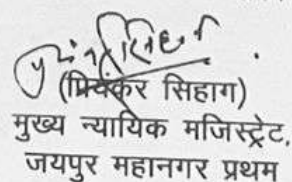 (प्रियंकर सिहाग)
मुख्य न्यायिक मजिस्ट्रेट,
जयपुर महानगर प्रथम